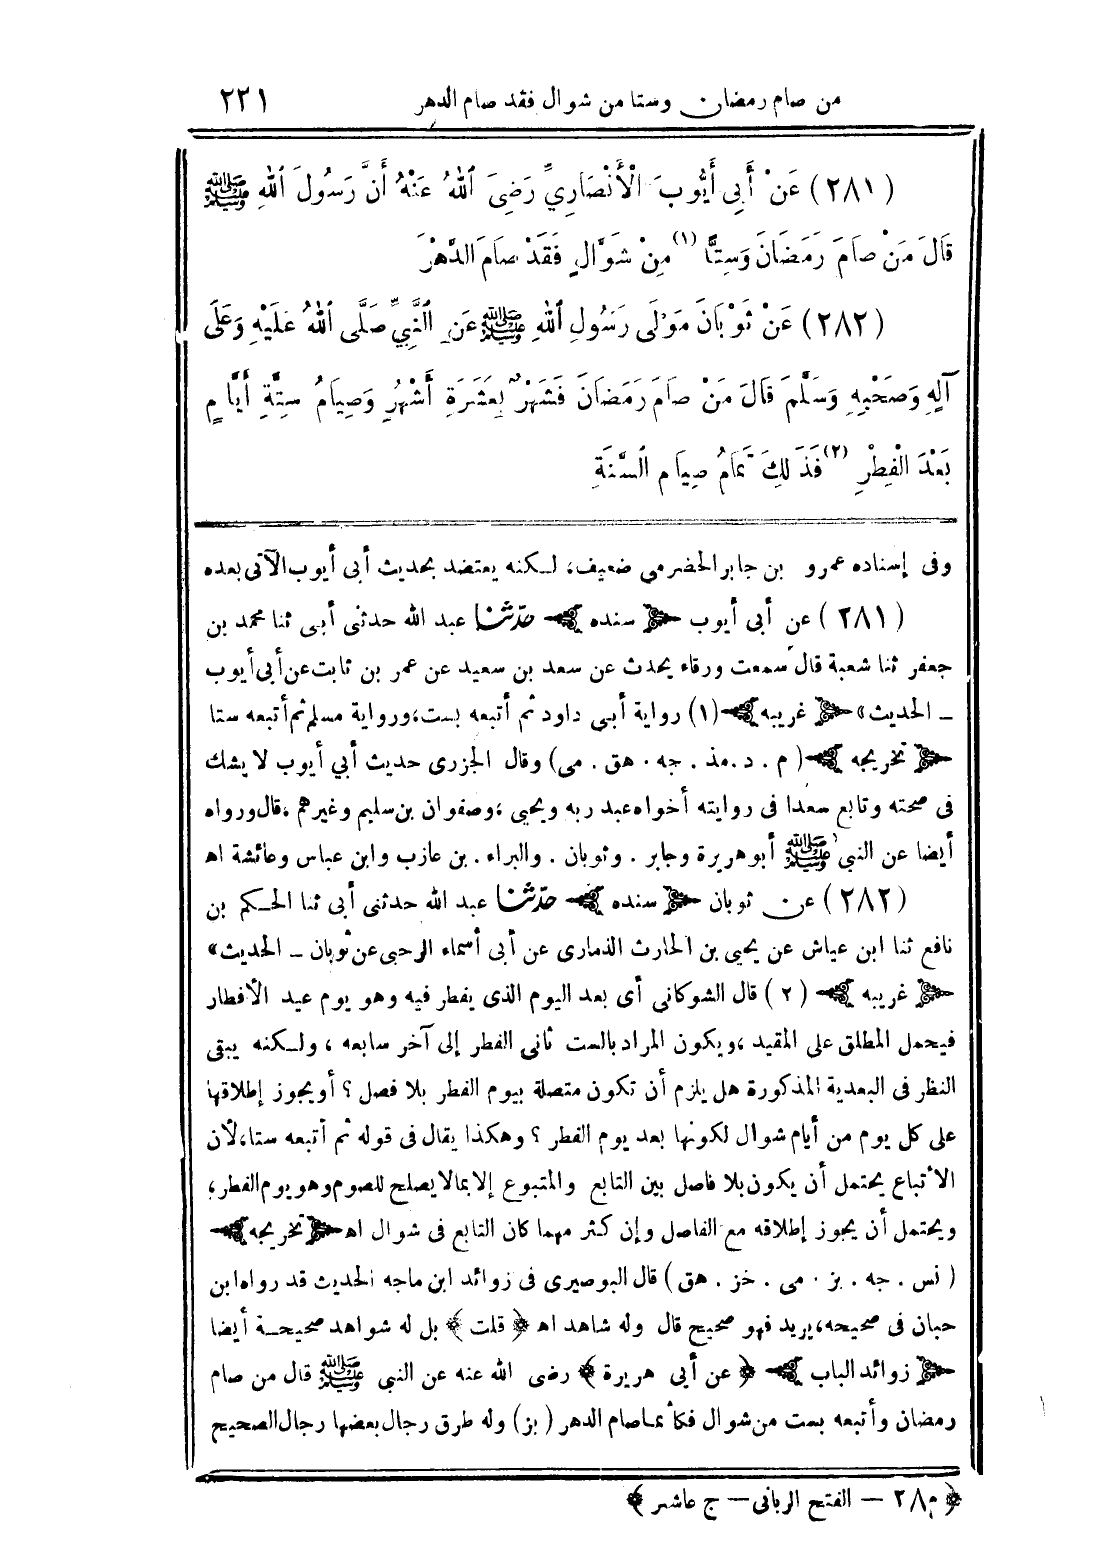 من صام رمضان وستا من شوال فقد صام الدهر ٢٢١
(٢٨١) عَنْ أَبِي أَيُّوبَ الْأَنْصَارِيِّ رَضِيَ اللهُ عَنْهُ أَنَّ رَسُولَ اللهِ ﷺ
قَالَ مَنْ صَامَ رَمَضَانَ وَسِتًّا (١) مِنْ شَوَّالٍ فَقَدْ صَامَ الدَّهْرَ
(٢٨٢) عَنْ ثَوْبَانَ مَوْلَى رَسُولِ اللهِ ﷺ عَنِ النَّبِيِّ صَلَّى اللهُ عَلَيْهِ وَعَلَى
آلِهِ وَصَحْبِهِ وَسَلَّمَ قَالَ مَنْ صَامَ رَمَضَانَ فَشَهْرٌ بِعَشَرَةِ أَشْهُرٍ وَصِيَامُ سِتَّةِ أَيَّامٍ
بَعْدَ الْفِطْرِ (٢) فَذَلِكَ تَمَامُ صِيَامِ السَّنَةِ
وفى إسناده عمرو بن جابر الحضرمي ضعيف، لكنه يعتضد بحديث أبى أيوب الآتى بعده
(٢٨١) عن أبى أيوب ﴿ سنده ﴾ حدّثنا عبد الله حدثنى أبى ثنا محمد بن
جعفر ثنا شعبة قال سمعت ورقاء يحدث عن سعد بن سعيد عن عمر بن ثابت عن أبى أيوب
ـ الحديث» ﴿ غريبه ﴾ (١) رواية أبى داود ثم أتبعه بست، ورواية مسلم ثم أتبعه ستا
﴿ تخريجه ﴾ ( م . د . مذ . جه . هق . مى ) وقال الجزرى حديث أبي أيوب لا يشك
فى صحته وتابع سعدا فى روايته أخواه عبد ربه ويحيى ، وصفوان بن سليم وغيرهم ، قال ورواه
أيضا عن النبى ﷺ أبو هريرة وجابر . وثوبان . والبراء . بن عازب وابن عباس وعائشة اهـ
(٢٨٢) عن ثوبان ﴿ سنده ﴾ حدّثنا عبد الله حدثنى أبى ثنا الحكم بن
نافع ثنا ابن عياش عن يحيى بن الحارث الذمارى عن أبى أسماء الرحبى عن ثوبان ـ الحديث»
﴿ غريبه ﴾ (٢) قال الشوكانى أى بعد اليوم الذى يفطر فيه وهو يوم عيد الأفطار
فيحمل المطلق على المقيد ، ويكون المراد بالست ثانى الفطر إلى آخر سابعه ، ولكنه يبقى
النظر فى البعدية المذكورة هل يلزم أن تكون متصلة بيوم الفطر بلا فصل ؟ أو يجوز إطلاقها
على كل يوم من أيام شوال لكونها بعد يوم الفطر ؟ وهكذا يقال فى قوله ثم أتبعه ستا، لأن
الأتباع يحتمل أن يكون بلا فاصل بين التابع والمتبوع إلا بما لا يصلح للصوم وهو يوم الفطر،
ويحتمل أن يجوز إطلاقه مع الفاصل وإن كثر مهما كان التابع فى شوال اهـ ﴿ تخريجه ﴾
( نس . جه . بز . مى . خز . هق ) قال البوصيرى فى زوائد ابن ماجه الحديث قد رواه ابن
حبان فى صحيحه، يريد فهو صحيح قال وله شاهد اهـ ﴿ قلت ﴾ بل له شواهد صحيحة أيضا
﴿ زوائد الباب ﴾ ﴿ عن أبى هريرة ﴾ رضى الله عنه عن النبى ﷺ قال من صام
رمضان وأتبعه بست من شوال فكأنما صام الدهر ( بز ) وله طرق رجال بعضها رجال الصحيح
﴿ م ٢٨ ـ الفتح الربانى ـ ج عاشر ﴾